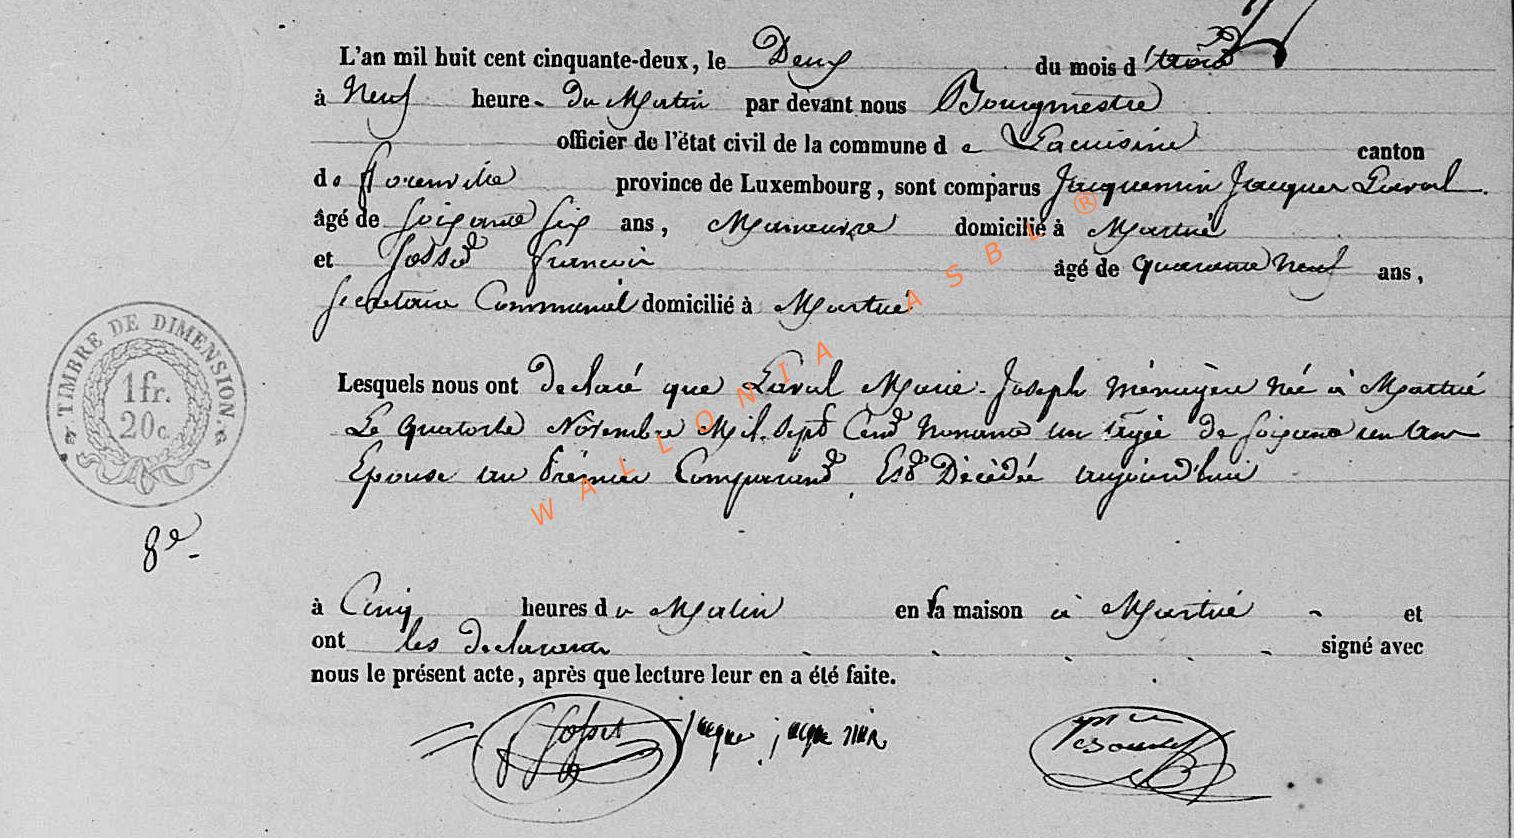 L'an mil huit cent cinquante-deux, le Deux du mois d'
à Neuf heure du Matin par devant nous Bourgmestre
officier de l'état civil de la commune de Lacuisine canton
de Florenville province de Luxembourg, sont comparus Jacquemin Jacques Laval
âgé de soixante six ans, Manœuvre domicilié à Martué
et Josse francois âgé de quarante Neuf ans,
secretaire Communal domicilié à Martué
Lesquels nous ont Declaré que Laval Marie-Joseph Ménagère née à Martué
Le quatorze Novembre Mil Sept Cent Nonante un agée de soixante un ans
Epouse au Premier Comparant, Est Décédée aujourd'hui
à Cinq heures du Matin en la maison à Martué et
ont les declarants signé avec
nous le présent acte, après que lecture leur en a été faite.
jacque jacqueminR
TIMBRE DE DIMENSION.
1fr.
20c
8e
WALLONIA ASBL ®